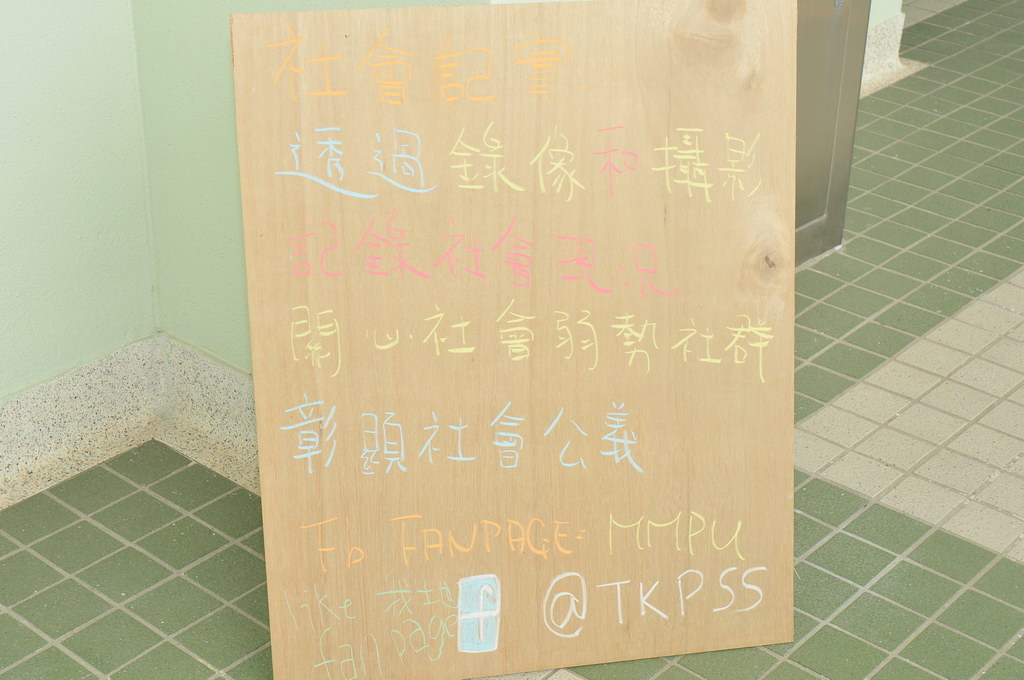 社會記實
透過錄像和攝影
記錄社會現況
關心社會弱勢社群
彰顯社會公義
Fb FANPAGE: MMPU
@TKPSS
like 我地 f
fanpage